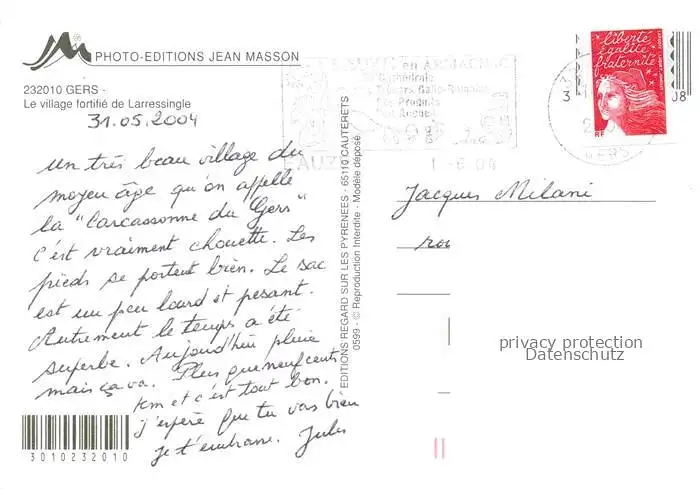 PHOTO-EDITIONS JEAN MASSON
232010 GERS -
Le village fortifié de Larressingle
31.05.2004
Un très beau village du
moyen âge qu'on appelle
la "Carcassonne du Gers"
c'est vraiment chouette. Les
pieds se portent bien. Le sac
est un peu lourd et pesant.
Autrement le temps a été
superbe. Aujourd'hui pluie
mais ça va. Plus que neuf cents
km et c'est tout bon.
j'espère que tu vas bien
je t'embrasse. Jules
3010232010
EDITIONS REGARD SUR LES PYRENEES - 65110 CAUTERETS
0599 - © Reproduction Interdite - Modèle déposé
en ARMAGNAC
Cathédrale
Trésors Gallo-Romains
Produits
Accueil
EAUZ
1-6 04
liberté
égalité
fraternité
RF
3
08
GERS
Jacques Milani
privacy protection
Datenschutz